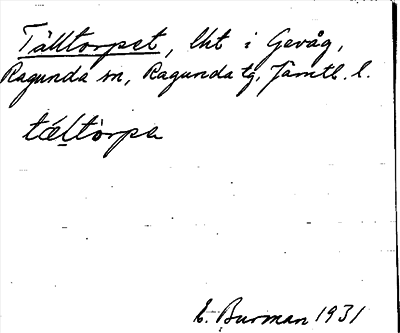 Tälltorpet, lht i Gevåg,
Ragunda sn, Ragunda tg, Jämtl. l.
tǽl̠tòrpa
E. Burman 1931